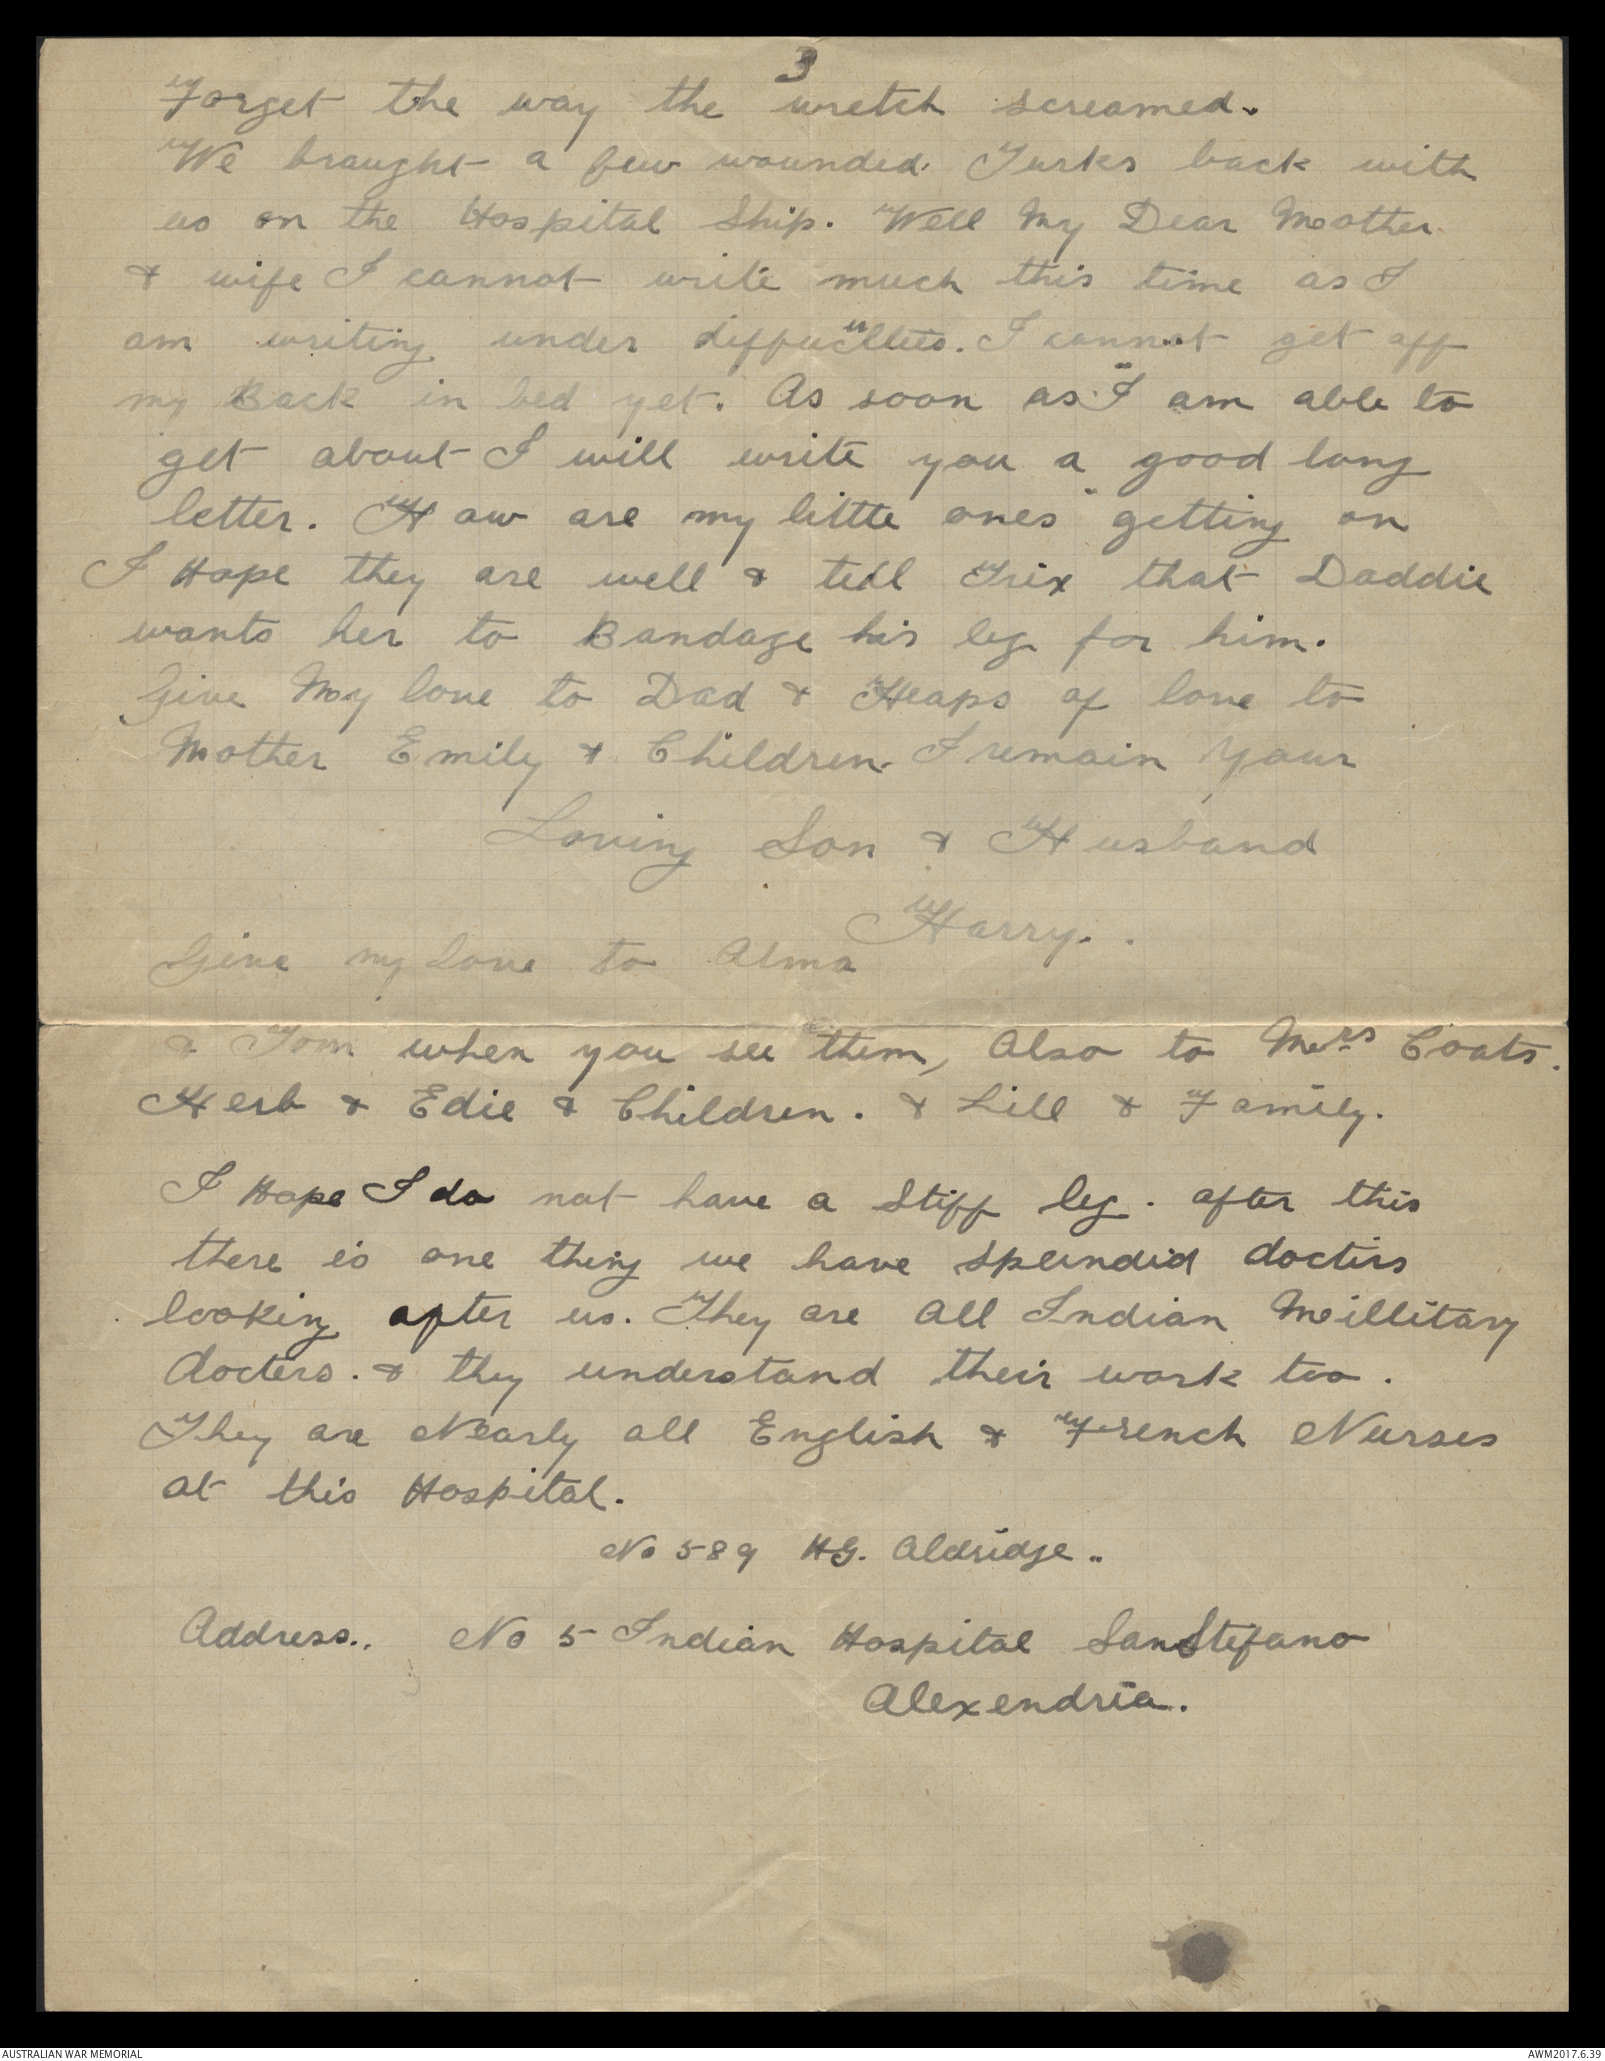 3
Forget the way the wretch screamed.
We braught a few wounded Turks back with
us on the Hospital Ship. Well My Dear Mother
& wife I cannot write much this time as I
am writing under diffucllties. I cannot get off
my Back in bed yet. As soon as I am able to
get about I will write you a good long
letter. How are my little ones getting on
I Hope they are well & tell Trix that Daddie
wants her to Bandage his leg for him.
Give My love to Dad & Heaps of love to
Mother Emily & Children. I remain your
Loving Son & Husband
Harry..
Give my Love to Alma
& Tom when you see them, Also to Mrs Coats.
Herb & Edie & Children. & Lill & Family.
I Hope I do not have a Stiff leg. after this
there is one thing we have spleindid doctirs
looking after us. They are all Indian Meillitary
doctero. & they understand their work too.
They are Nearly all English & French Nurses
at this Hospital.
No 589 HG. Aldridge..
Address.. No 5 Indian Hospital SanStefano
Alexendria.
AUSTRALIAN WAR MEMORIAL
AWM2017.6.39